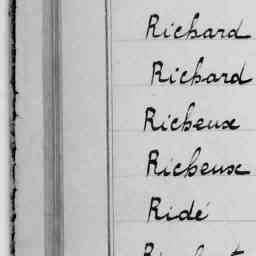 Richard
Richard
Richeux
Richeux
Ridé